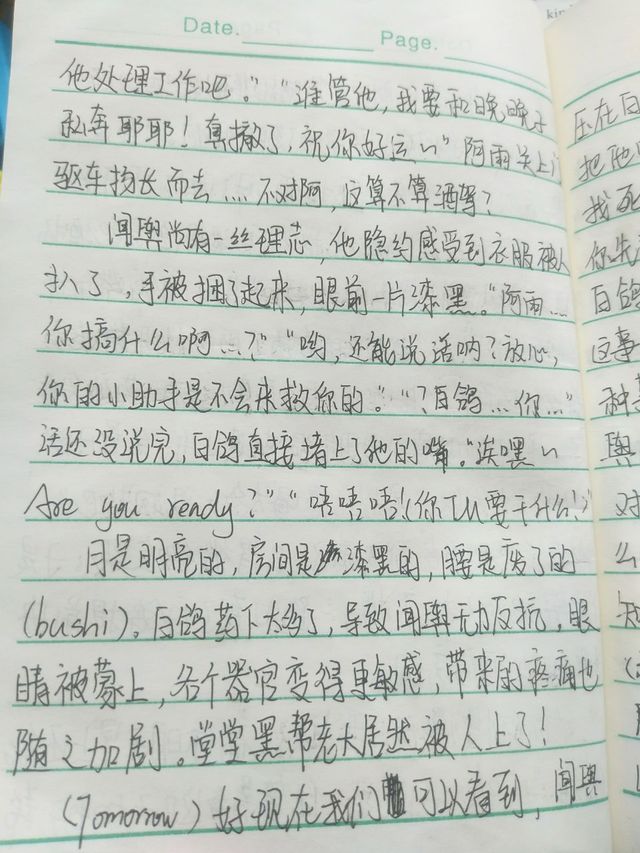 Date. Page.
他处理工作吧。”“谁管他，我要和晚晚子
私奔耶耶！真撤了，祝你好运～”阿雨关上门
驱车扬长而去....不对阿，这算不算酒驾？
闻舆尚有一丝理志，他隐约感受到衣服被人
扒了，手被捆了起来，眼前一片漆黑。“阿雨...
你搞什么啊...？”“哟，还能说话呐？放心，
你的小助手是不会来救你的。”“？白鸽...你...”
话还没说完，白鸽直接堵上了他的嘴。“诶嘿～
Are you ready？”“唔唔唔！(你TM要干什么！)”
月是明亮的，房间是漆黑的，腰是废了的
(bushi)。白鸽药下太多了，导致闻舆无力反抗，眼
睛被蒙上，各个器官变得更敏感，带来的疼痛也
随之加剧。堂堂黑帮老大居然被人上了！
(Tomorrow)好现在我们可以看到，闻舆
压在白
把他
找死
你先
白鸽
这事
种
舆
对
么